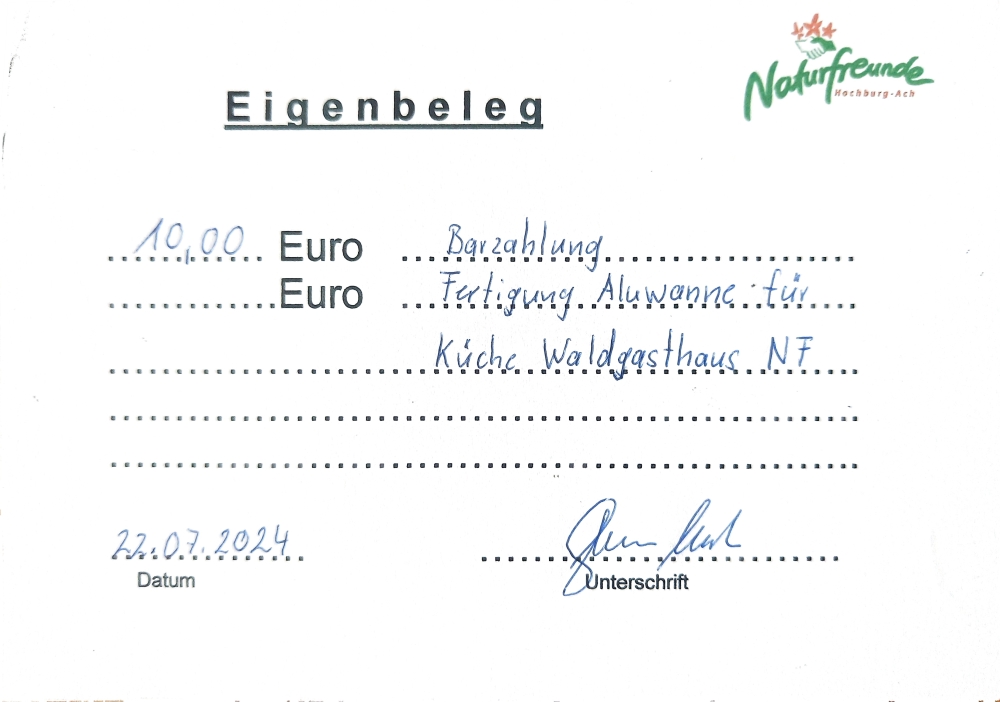 Naturfreunde
Hochburg-Ach
Eigenbeleg
10,00 Euro Barzahlung
Euro Fertigung Aluwanne für
Küche Waldgasthaus NF
22.07.2024
Datum Unterschrift